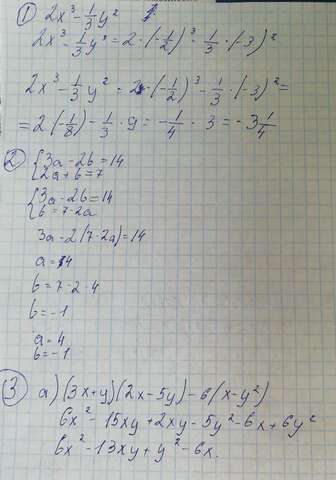 ① 2x³ - 1/3 y²
2x³ - 1/3 y² = 2·(-1/2)³ - 1/3·(-3)²
2x³ - 1/3 y² = 2·(-1/2)³ - 1/3·(-3)² =
= 2(-1/8) - 1/3·9 = -1/4·3 = -3 1/4
② {3a - 2b = 14
{2a + b = 7
{3a - 2b = 14
{b = 7 - 2a
3a - 2(7 - 2a) = 14
a = 4
b = 7 - 2·4
b = -1
a = 4
b = -1
③ a) (3x+y)(2x-5y) - 6(x-y²)
6x² - 15xy + 2xy - 5y² - 6x + 6y²
6x² - 13xy + y² - 6x.